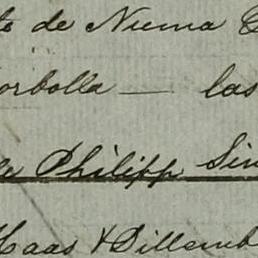 te de Numa C
orbolla — las
le Philipp Sin
Haas & Dillemb